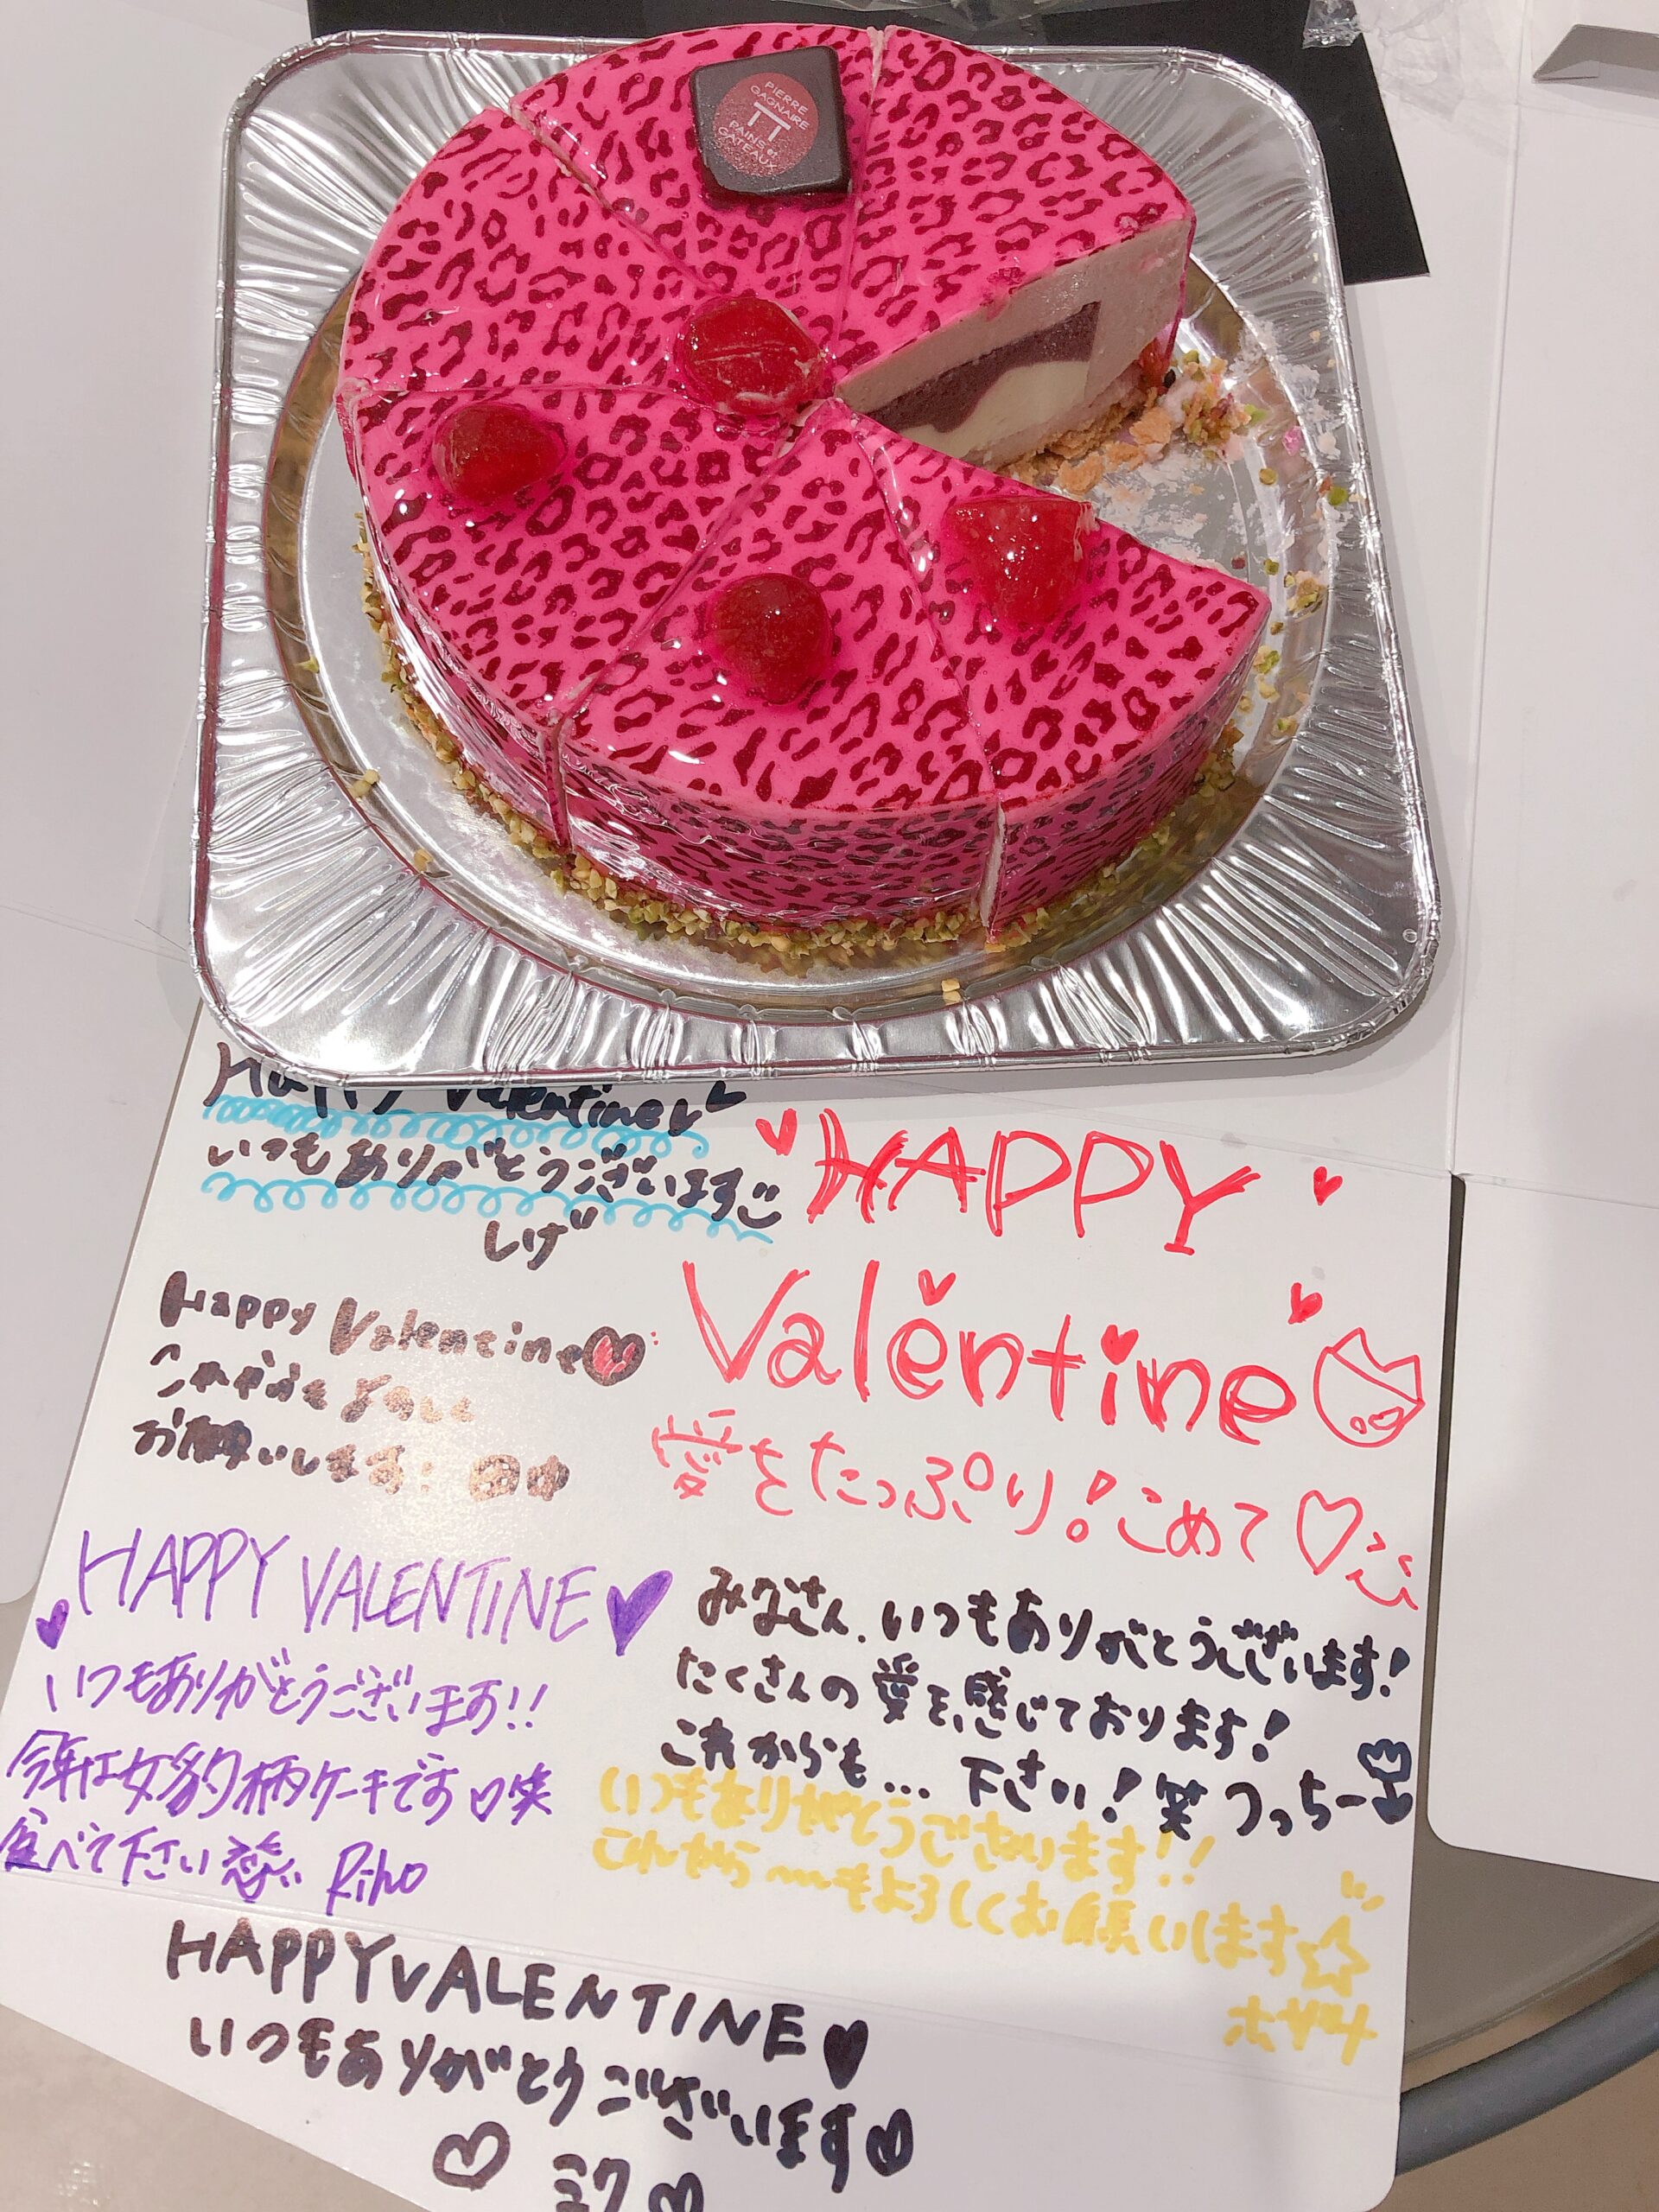 PIERRE
GAGNAIRE
PAINS et
GATEAUX
Happy Valentine
いつもありがとうございます
しげ
Happy Valentine
これからもよろしく
お願いします
田中
HAPPY VALENTINE
いつもありがとうございます!!
今年は女豹柄ケーキです 笑
食べて下さい Riho
HAPPY
Valentine
愛をたっぷり!こめて
みなさん、いつもありがとうございます!
たくさんの愛を感じております!
これからも... 下さい!笑 つっちー
いつもありがとうございます!!
これから〜もよろしくお願いします☆
HAPPY VALENTINE
いつもありがとうございます
ミク